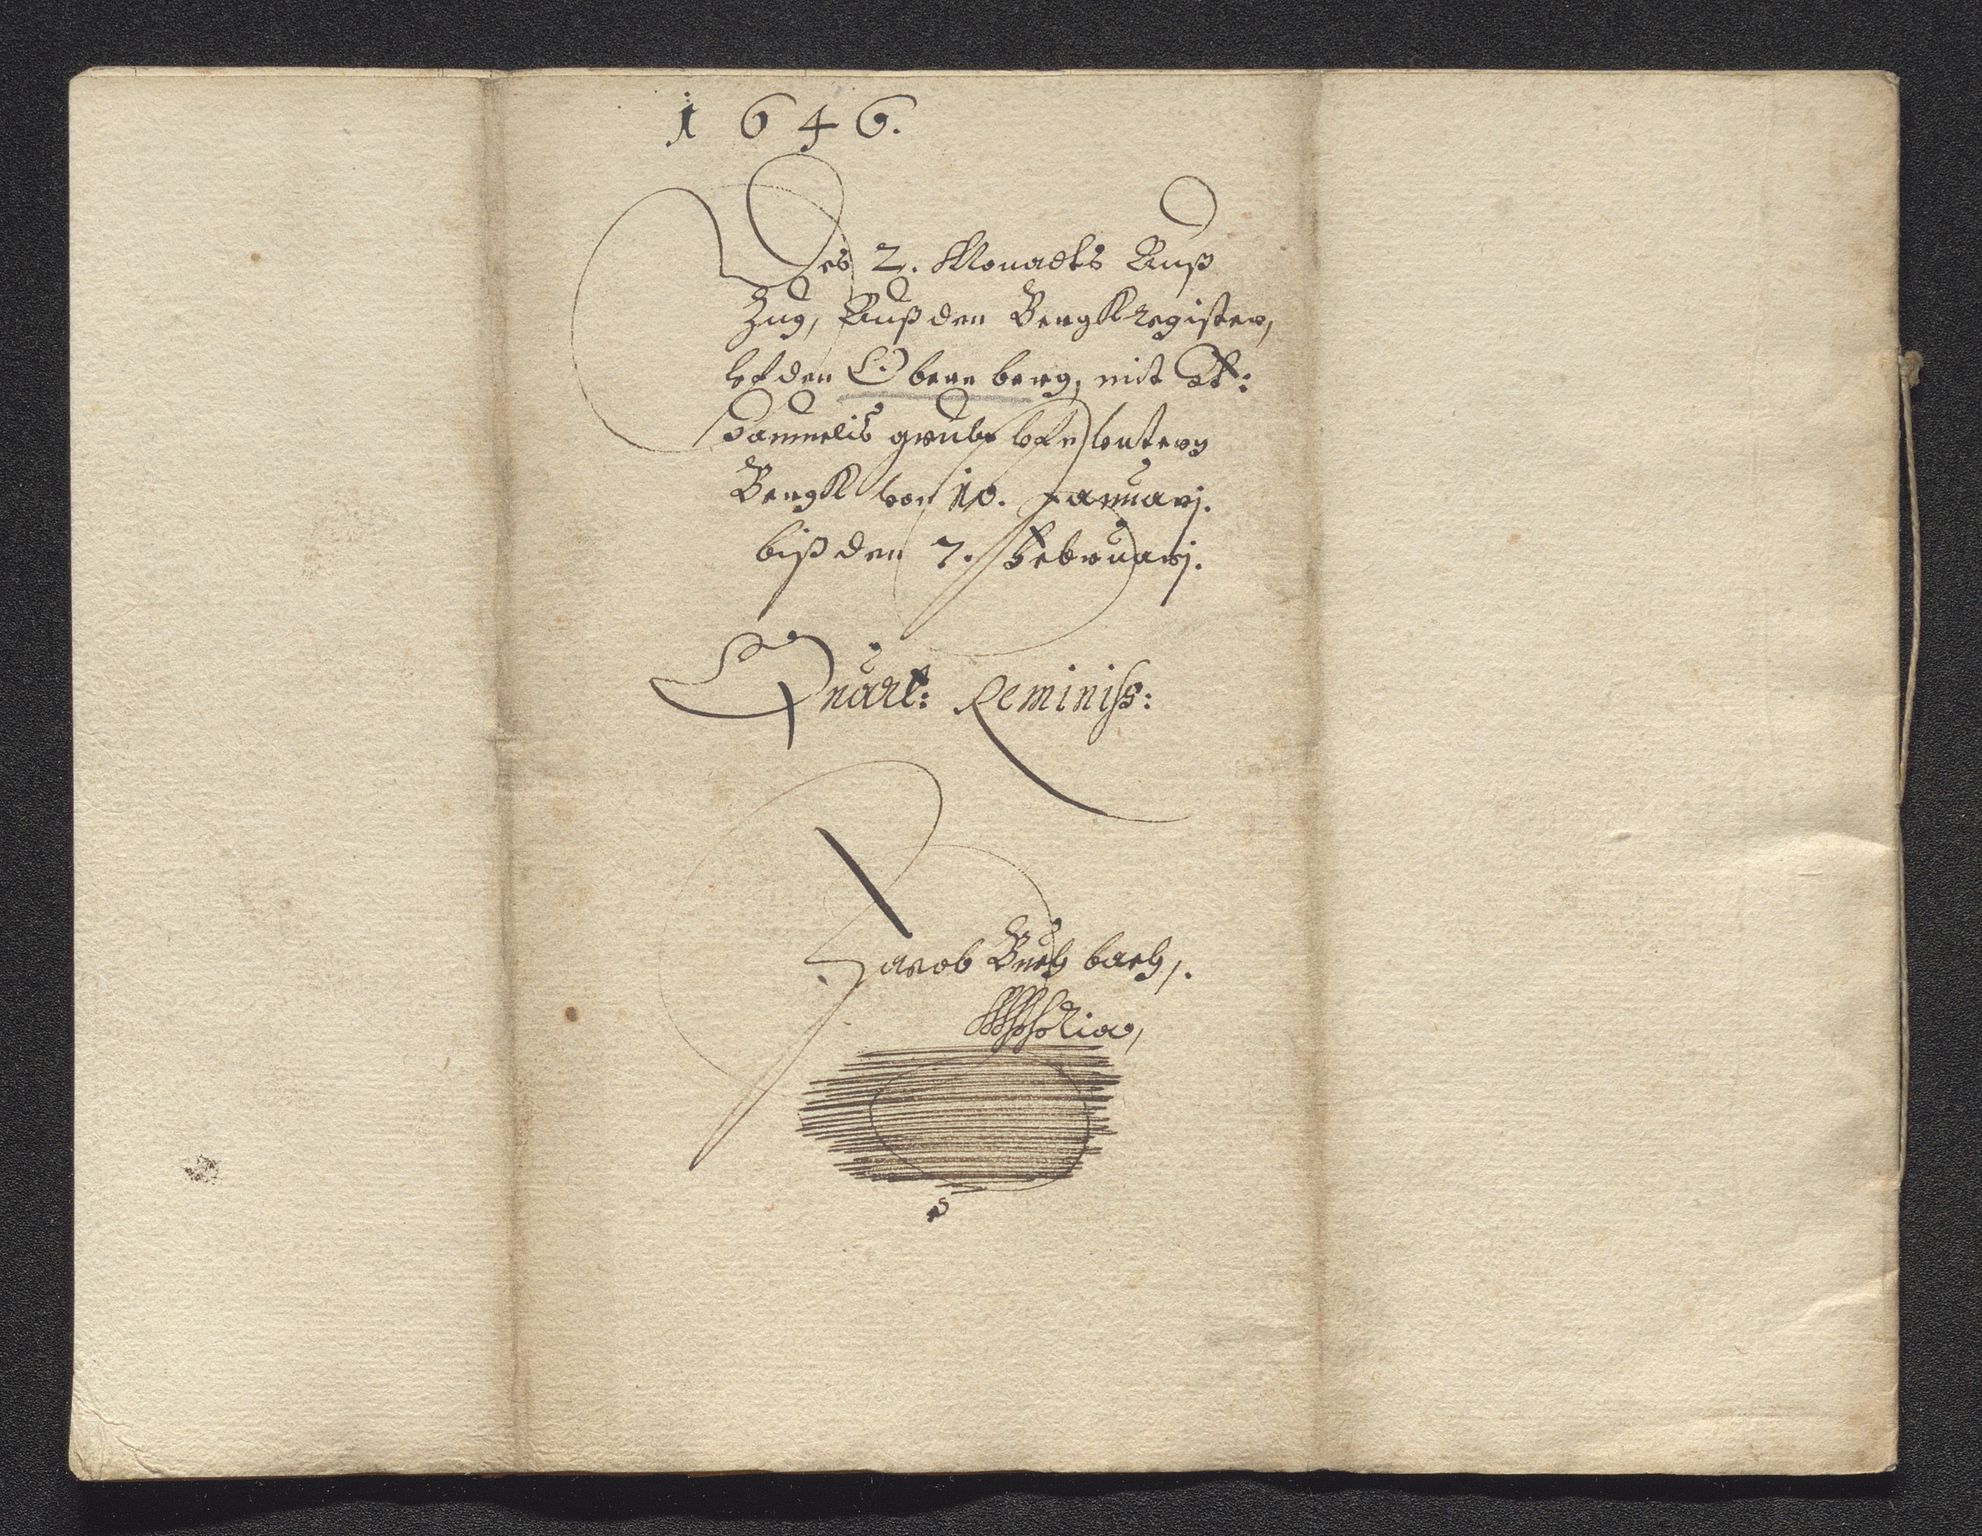 1646.
Des 2. Monadts Auß
Zug, Auß den BergKregister,
vf den Obern berg, mit St:
Samuelis grube vfn vntern
BergK von 10. Januarj.
biß den 7. Februarj.
Quart: Reminiss:
Jacob Buchbach,.